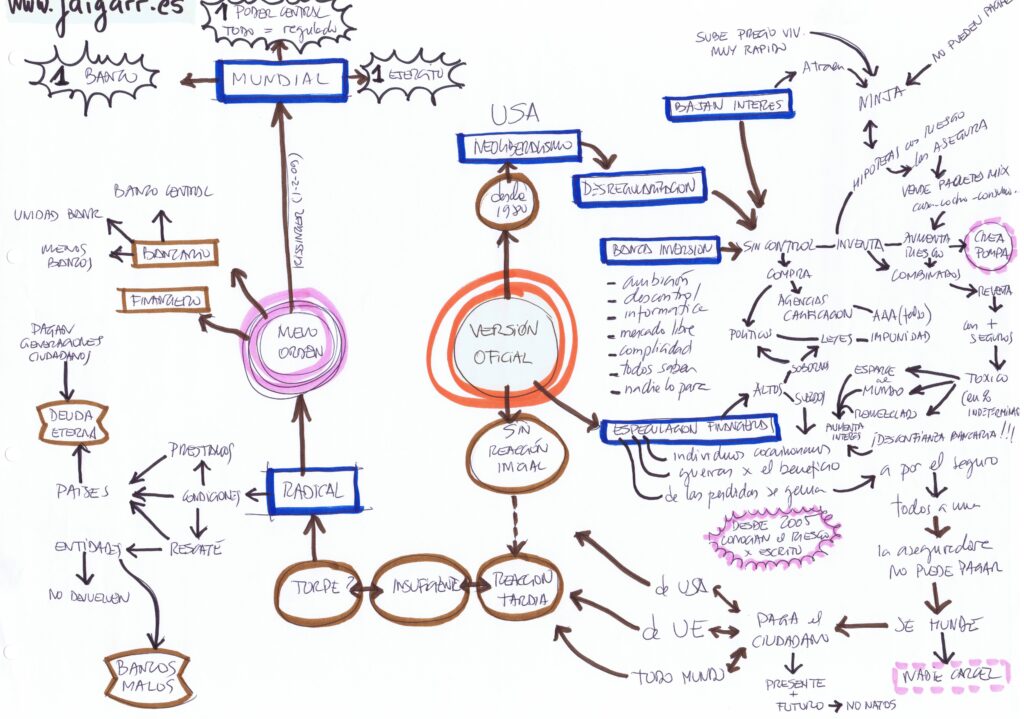 www.jaigarr.es
1 PODER CENTRAL
TODO = regulado
1 BANCO
MUNDIAL
1 EJERCITO
KISSINGER (1-2-09)
BANCO CENTRAL
UNIDAD BANK
MENOS
BANCOS
BANCARIO
FINANCIERO
NUEVO
ORDEN
PAGAN
GENERACIONES
CIUDADANOS
DEUDA
ETERNA
PAISES
PRESTAMOS
CONDICIONES
RESCATE
RADICAL
ENTIDADES
NO DEVUELVEN
BANCOS
MALOS
TORPE?
INSUFICIENTE
REACCION
TARDIA
USA
NEOLIBERALISMO
desde
1980
DESREGULARIZACION
VERSIÓN
OFICIAL
SIN
REACCIÓN
INICIAL
SUBE PRECIO VIV.
MUY RAPIDO
Atraen
BAJAN INTERES
NO PUEDEN PAGAR
NINJA
HIPOTECAS con RIESGO
las ASEGURA
VENDE PAQUETES MIX
casa-coche-consumo..
BANCA INVERSION
SIN CONTROL
INVENTA
AUMENTA
RIESGO
CREA
POMPA
COMBINADOS
REVENTA
con +
SEGUROS
TOXICO
COMPRA
AGENCIAS
CALIFICACION
AAA (todo)
POLITICOS
LEYES
IMPUNIDAD
SOBORNA
ALTOS
SUELDOS
ESPARCE
al
MUNDO
REMEZCLADO
AUMENTA
INTERES
¡DESCONFIANZA BANCARIA!!!
- ambición
- descontrol
- informatica
- mercado libre
- complicidad
- todos saben
- nadie lo para
ESPECULACION FINANCIERA!
individuos cocainomanos
guerras x el beneficio
de las perdidas se genera
a por el seguro
todos a una
la aseguradora
NO PUEDE PAGAR
SE HUNDE
NADIE CARCEL
DESDE 2005
CONOCIAN el RIESGO
x ESCRITO
de USA
de UE
TODO MUNDO
PAGA el
CIUDADANO
PRESENTE
+
FUTURO
NO NATOS